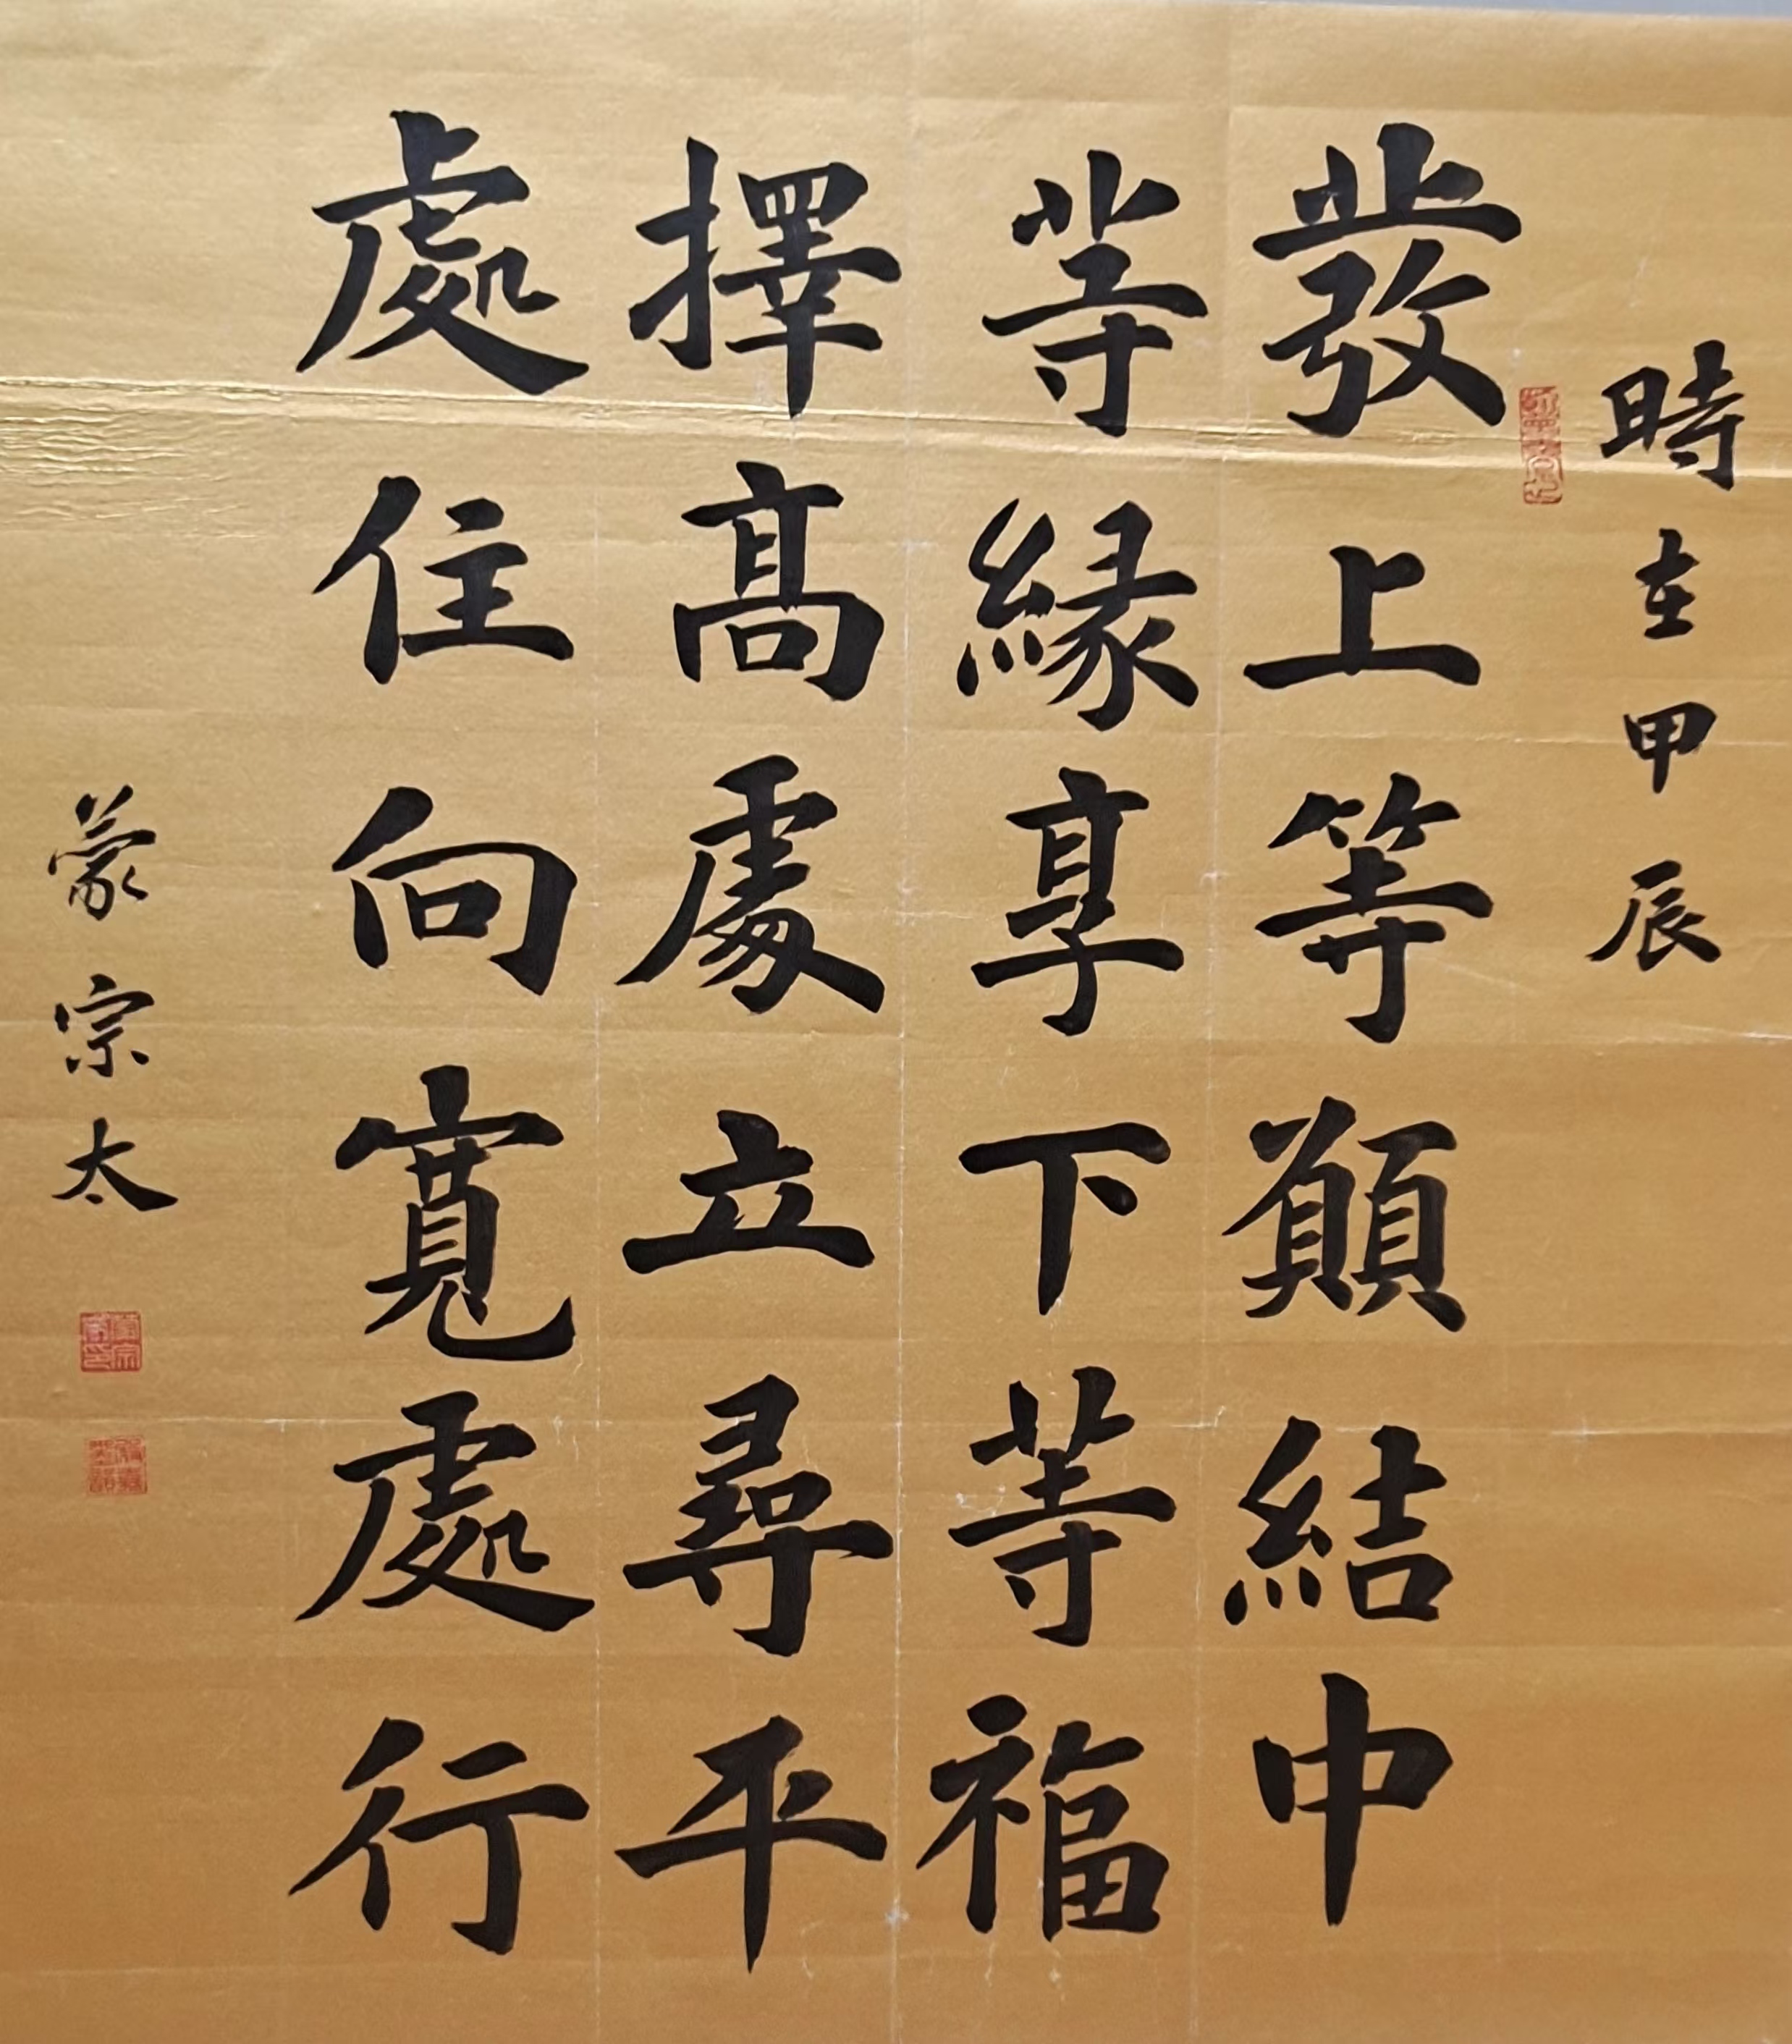 時在甲辰
發上等願結中
等縁享下等福
擇高處立尋平
處住向寬處行
蒙宗太